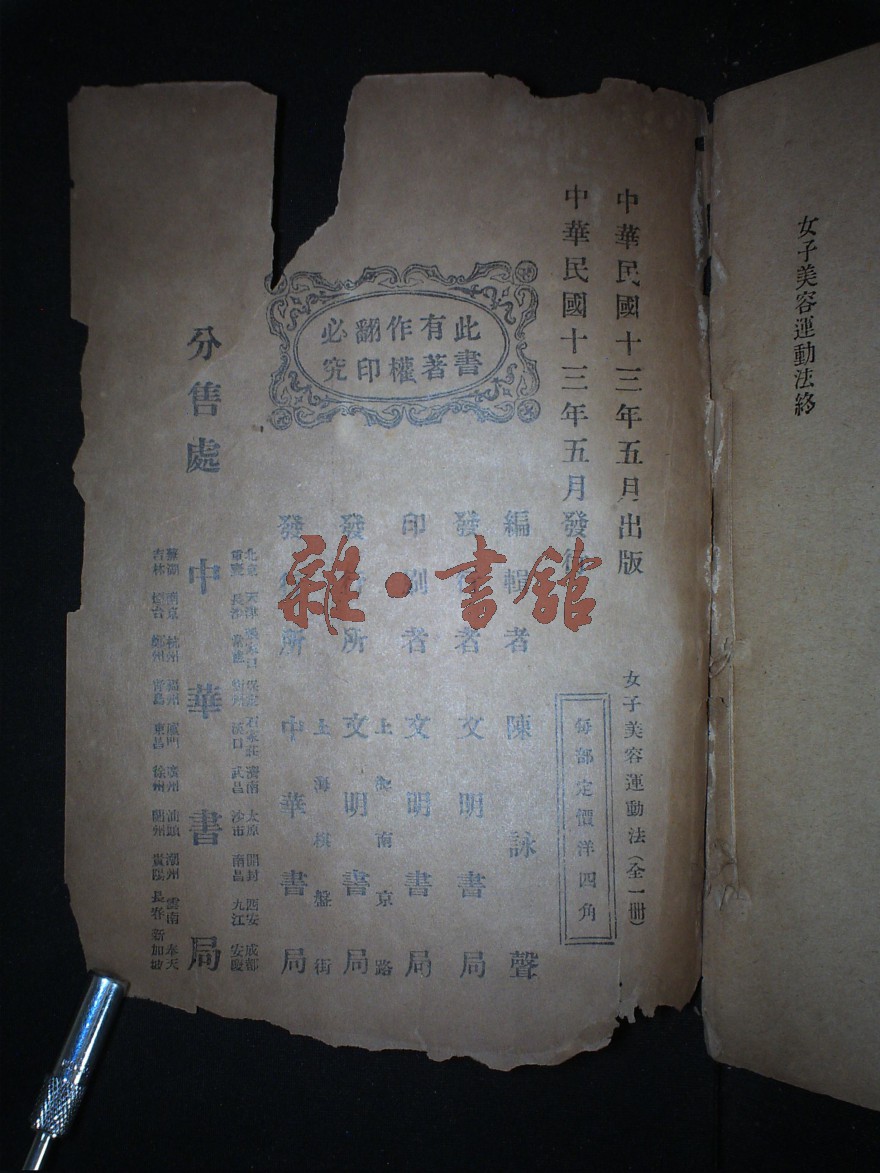 女子美容運動法終
中華民國十三年五月出版
女子美容運動法(全一冊)
中華民國十三年五月發行
每部定價洋四角
編輯者 陳詠聲
發行者 文明書局
印刷者 文明書局
上海南京路
發行所 文明書局
上海棋盤街
發行所 中華書局
此書
有著
作權
翻印
必究
北京 天津 張家口 保定 石家莊 濟南 太原 開封 西安 成都
重慶 長沙 常德 衡州 漢口 武昌 沙市 南昌 九江 安慶
分售處 中華書局
蕪湖 南京 杭州 福州 廈門 廣州 汕頭 潮州 雲南 奉天
吉林 煙台 鄭州 青島 東昌 徐州 蘭州 貴陽 長春 新加坡
雜·書館